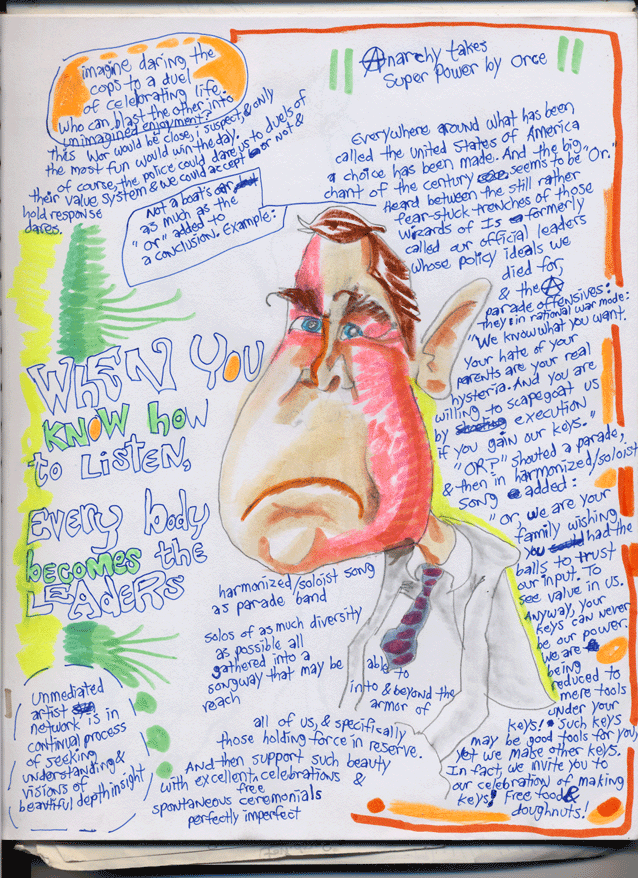 imagine daring the
cops to a duel
of celebrating life.
Who can blast the other into
unimagined enjoyment?
This War would be close, i suspect, & only
the most fun would win the day.
of course, the police could dare us to duels of
their value system & we could accept or not &
hold response
dares.
Not a boat's oar
as much as the
"or" added to
a conclusion. Example:
WHEN YOU
KNOW HOW
to LISTEN,
EVERY body
becomes the
LEADERS
Unmediated
artist
network is in
continual process
of seeking
understanding &
visions of
beautiful depth insight
Anarchy takes
Super Power by Orce
Everywhere around what has been
called the United States of America
a choice has been made. And the big
chant of the century seems to be "Or."
Heard between the still rather
fear-stuck-trenches of those
Wizards of Is formerly
called our official leaders
whose policy ideals we
died for,
& the A
parade offensives:
they: in rational war mode:
"We know what you want.
Your hate of your
parents are your real
hysteria. And you are
willing to scapegoat us
by execution
if you gain our keys."
"OR?" shouted a parade,
& then in harmonized/soloist
song added:
"or we are your
family wishing
you had the
balls to trust
our input. To
see value in us.
Anyway, your
keys can never
be our power.
We are
being
reduced to
mere tools
under your
keys! Such keys
may be good tools for you,
yet we make other keys.
In fact, we invite you to
our celebration of making
keys! Free food &
doughnuts!
harmonized/soloist song
as parade band
solos of as much diversity
as possible all
gathered into a
songway that may be able to
reach into & beyond the
armor of
all of us, & specifically
those holding force in reserve.
And then support such beauty
with excellent celebrations &
free
spontaneous ceremonials
perfectly imperfect